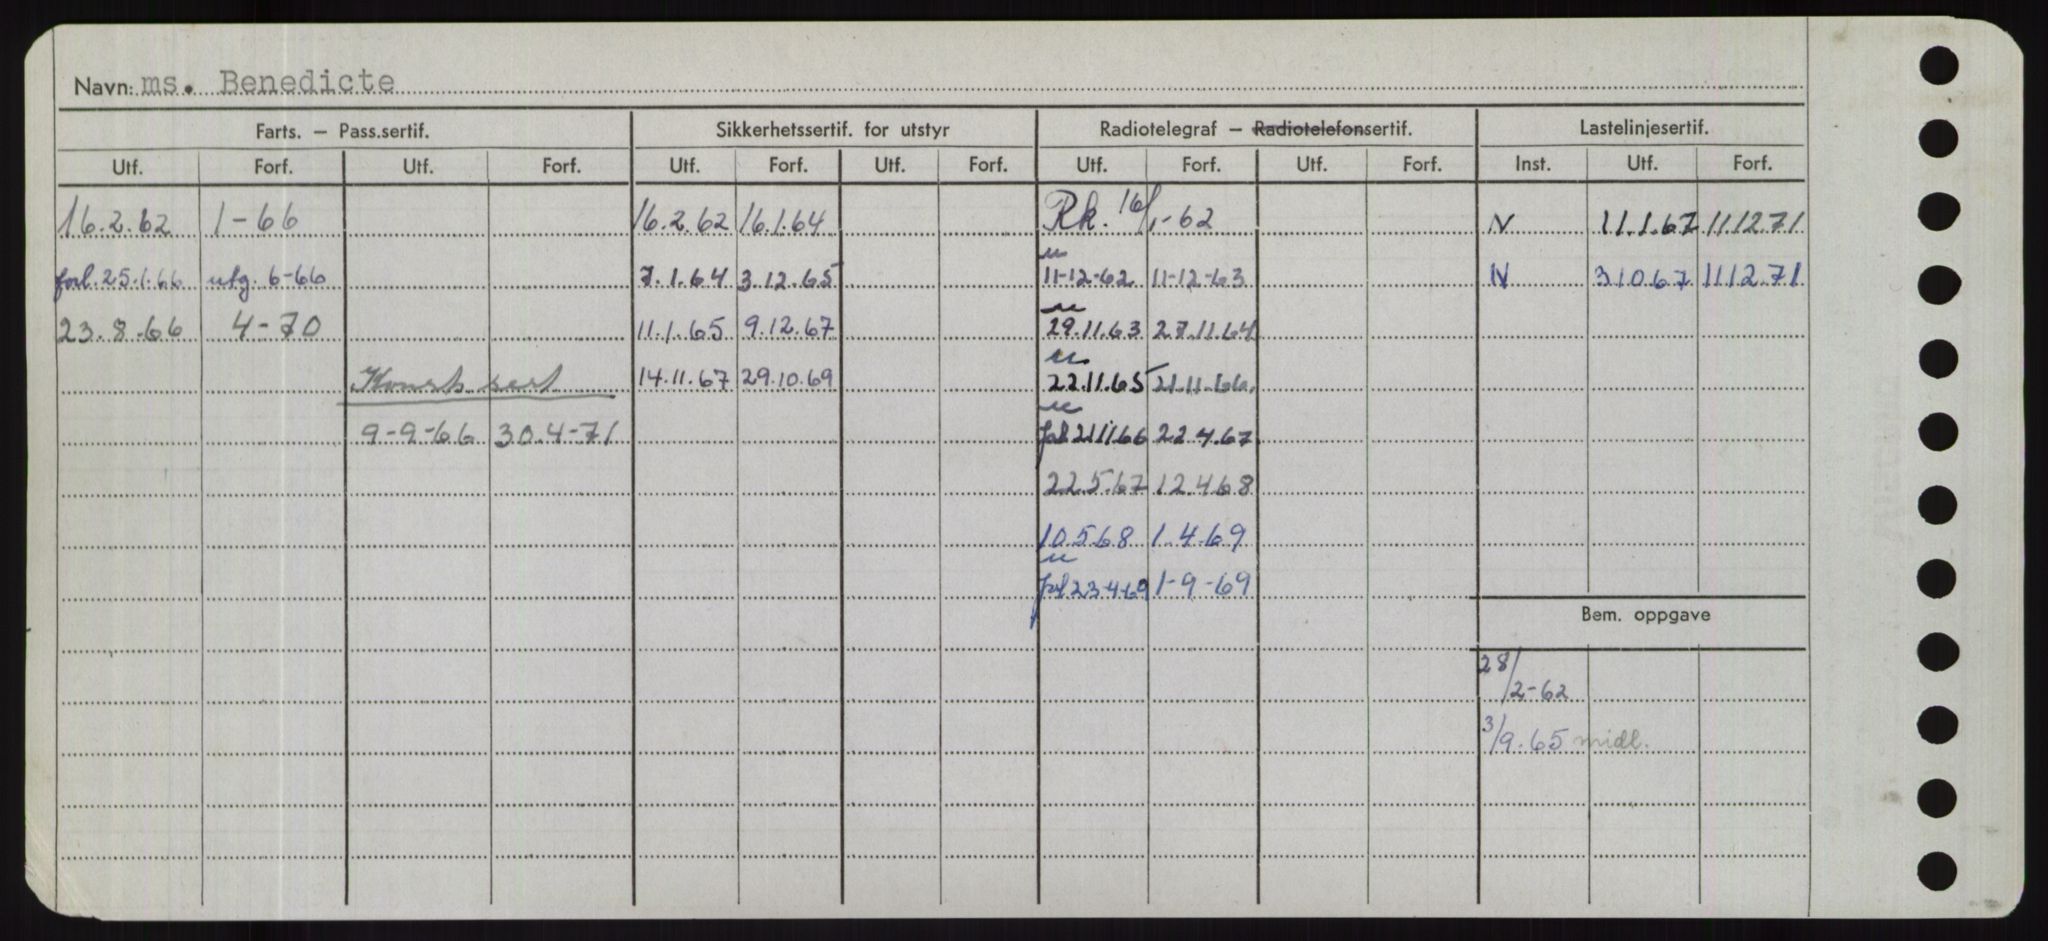 Navn: ms. Benedicte
Farts. – Pass.sertif. Sikkerhetssertif. for utstyr Radiotelegraf – Radiotelefonsertif. Lastelinjesertif.
Utf. Forf. Utf. Forf. Utf. Forf. Utf. Forf. Utf. Forf. Utf. Forf. Inst. Utf. Forf.
16.2.62 1-66 16.2.62 16.1.64 Rk. 16/1-62 N 11.1.67 11.12.71
forl. 25.1.66 utg. 6-66 7.1.64 3.12.65 11-12-62 11-12-63 N 31067 1112.71
23.8.66 4-70 11.1.65 9.12.67 29.11.63 27.11.64
sert 14.11.67 29.10.69 22.11.65 21.11.66.
9-9-66 30.4-71 21.11.66 22.4.67
22.5.67 12468
10.5.68 1.4.69
23-4-69 1-9-69
Bem. oppgave
28/2-62
3/9.65 midl.